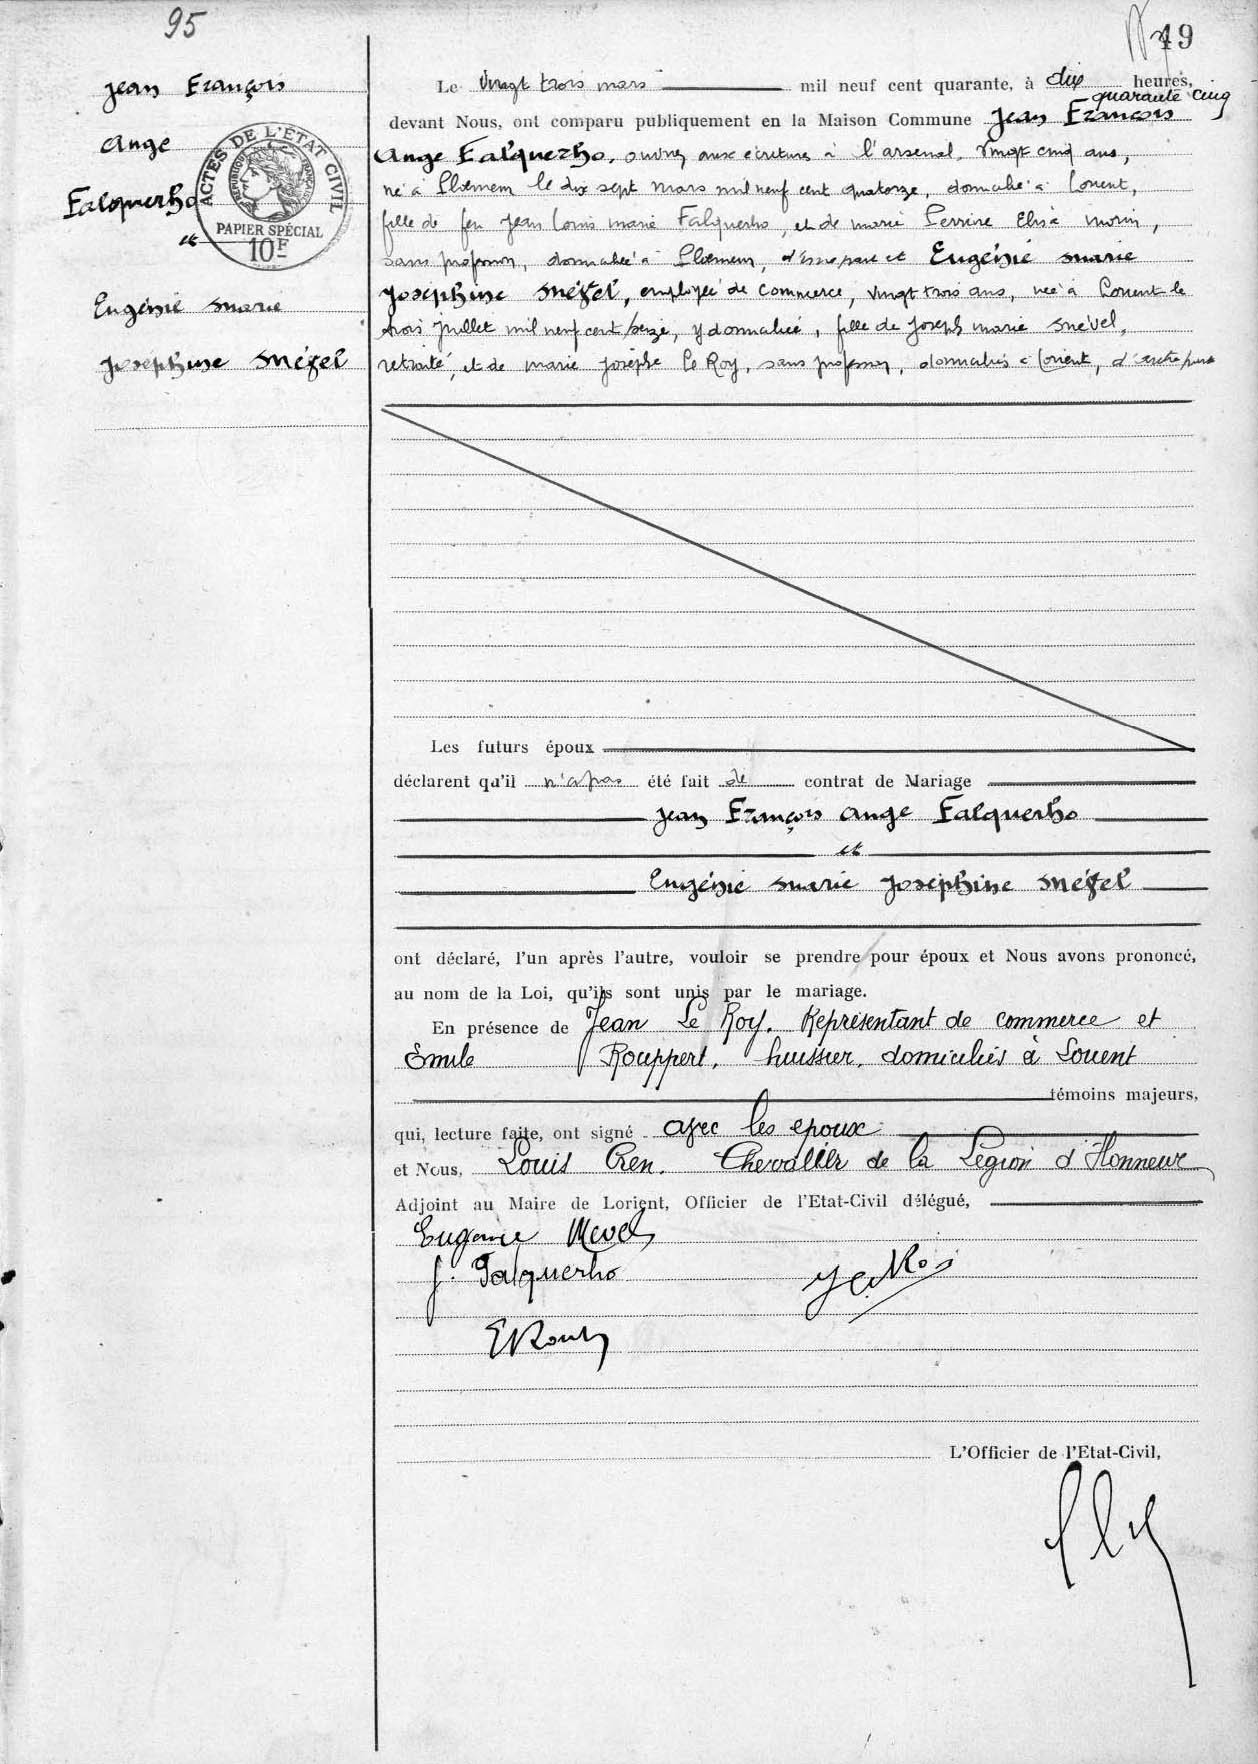 95
49
Jean François
Ange
Falquerho
et
Eugénie Marie
Josephine Mével
ACTES DE L'ÉTAT CIVIL
RÉPUBLIQUE FRANÇAISE
PAPIER SPÉCIAL
10F
Le vingt trois mars mil neuf cent quarante, à dix heures,
quarante cinq
devant Nous, ont comparu publiquement en la Maison Commune Jean François
Ange Falquerho, ouvrier aux écritures à l'arsenal, vingt cinq ans,
né à Ploemeur le dix sept mars mil neuf cent quatorze, domicilié à Lorient,
fils de feu Jean Louis Marie Falquerho, et de Marie Perrine Elisa Morin,
sans profession, domiciliée à Ploemeur, d'une part et Eugénie Marie
Josephine Mével, employée de commerce, vingt trois ans, née à Lorient le
trois juillet mil neuf cent seize, y domiciliée, fille de Joseph Marie Mével,
retraité, et de Marie Josèphe Le Roy, sans profession, domiciliés à Lorient, d'autre part
Les futurs époux
déclarent qu'il n'a pas été fait de contrat de Mariage
Jean François Ange Falquerho
et
Eugénie Marie Josephine Mével
ont déclaré, l'un après l'autre, vouloir se prendre pour époux et Nous avons prononcé,
au nom de la Loi, qu'ils sont unis par le mariage.
En présence de Jean Le Roy, Représentant de commerce et
Emile Rouppert, huissier, domiciliés à Lorient
témoins majeurs,
qui, lecture faite, ont signé avec les époux
et Nous, Louis Cren, Chevalier de la Légion d'Honneur
Adjoint au Maire de Lorient, Officier de l'Etat-Civil délégué,
Eugénie Mevel
J. Falquerho
L'Officier de l'Etat-Civil,